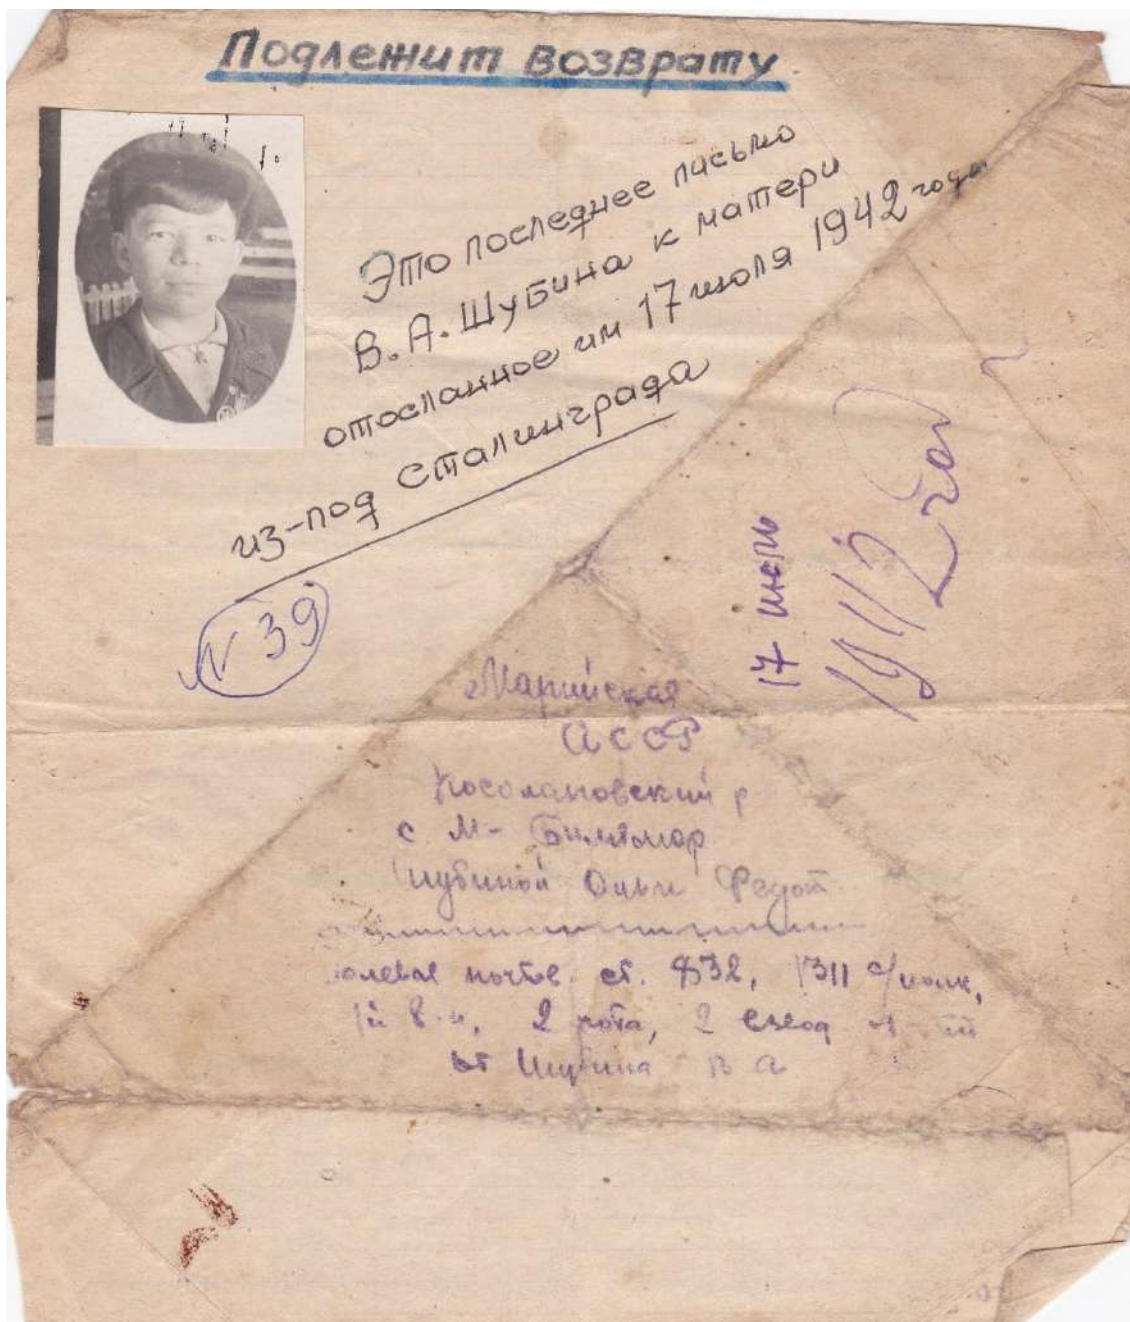 Подлежит возврату
Это последнее письмо
В. А. Шубина к матери
отосланное им 17 июля 1942 года
из-под Сталинграда
N 39
17 июль
1942 год
Марийская
АССР
Косолаповский р
с М- Билямор
Шубиной Ольги Федот
полевая почтов. ст. 832, 1311 с/полк,
2 рота, 2 взвод
от Шубина В А